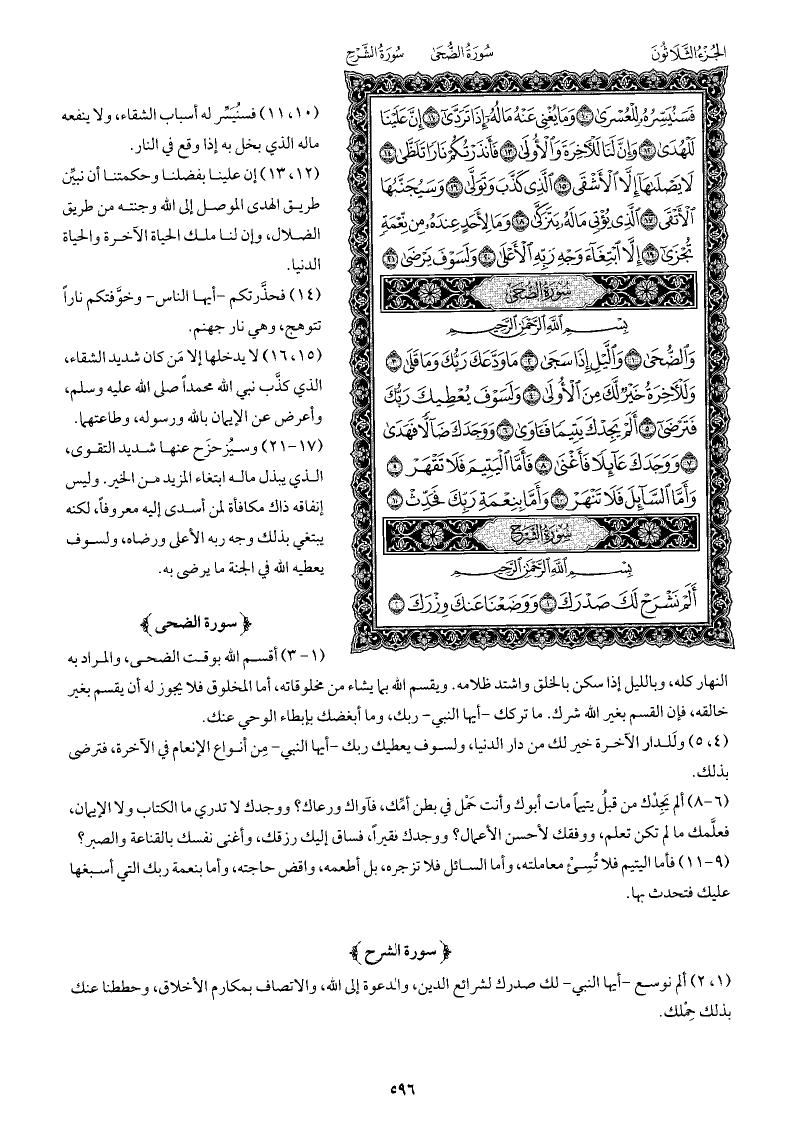 الجزء الثلاثون
سورة الضحى
سورة الشرح
فَسَنُيَسِّرُهُۥ لِلْعُسْرَىٰ ١٠ وَمَا يُغْنِى عَنْهُ مَالُهُۥٓ إِذَا تَرَدَّىٰٓ ١١ إِنَّ عَلَيْنَا
لَلْهُدَىٰ ١٢ وَإِنَّ لَنَا لَلْـَٔاخِرَةَ وَٱلْأُولَىٰ ١٣ فَأَنذَرْتُكُمْ نَارًا تَلَظَّىٰ ١٤
لَا يَصْلَىٰهَآ إِلَّا ٱلْأَشْقَى ١٥ ٱلَّذِى كَذَّبَ وَتَوَلَّىٰ ١٦ وَسَيُجَنَّبُهَا
ٱلْأَتْقَى ١٧ ٱلَّذِى يُؤْتِى مَالَهُۥ يَتَزَكَّىٰ ١٨ وَمَا لِأَحَدٍ عِندَهُۥ مِن نِّعْمَةٍ
تُجْزَىٰٓ ١٩ إِلَّا ٱبْتِغَآءَ وَجْهِ رَبِّهِ ٱلْأَعْلَىٰ ٢٠ وَلَسَوْفَ يَرْضَىٰ ٢١
سُورَةُ الضُّحَىٰ
بِسْمِ ٱللَّهِ ٱلرَّحْمَٰنِ ٱلرَّحِيمِ
وَٱلضُّحَىٰ ١ وَٱلَّيْلِ إِذَا سَجَىٰ ٢ مَا وَدَّعَكَ رَبُّكَ وَمَا قَلَىٰ ٣
وَلَلْـَٔاخِرَةُ خَيْرٌ لَّكَ مِنَ ٱلْأُولَىٰ ٤ وَلَسَوْفَ يُعْطِيكَ رَبُّكَ
فَتَرْضَىٰٓ ٥ أَلَمْ يَجِدْكَ يَتِيمًا فَـَٔاوَىٰ ٦ وَوَجَدَكَ ضَآلًّا فَهَدَىٰ
٧ وَوَجَدَكَ عَآئِلًا فَأَغْنَىٰ ٨ فَأَمَّا ٱلْيَتِيمَ فَلَا تَقْهَرْ ٩
وَأَمَّا ٱلسَّآئِلَ فَلَا تَنْهَرْ ١٠ وَأَمَّا بِنِعْمَةِ رَبِّكَ فَحَدِّثْ ١١
سُورَةُ الشَّرْحِ
بِسْمِ ٱللَّهِ ٱلرَّحْمَٰنِ ٱلرَّحِيمِ
أَلَمْ نَشْرَحْ لَكَ صَدْرَكَ ١ وَوَضَعْنَا عَنكَ وِزْرَكَ ٢
(١٠، ١١) فسنُيَسِّر له أسباب الشقاء، ولا ينفعه
ماله الذي بخل به إذا وقع في النار.
(١٢، ١٣) إن علينا بفضلنا وحكمتنا أن نبيِّن
طريق الهدى الموصل إلى الله وجنته من طريق
الضلال، وإن لنا ملك الحياة الآخرة والحياة
الدنيا.
(١٤) فحذَّرتكم –أيها الناس– وخوَّفتكم ناراً
تتوهج، وهي نار جهنم.
(١٥، ١٦) لا يدخلها إلا مَن كان شديد الشقاء،
الذي كذَّب نبي الله محمداً صلى الله عليه وسلم،
وأعرض عن الإيمان بالله ورسوله، وطاعتهما.
(١٧-٢١) وسيُزحزَح عنها شديد التقوى،
الذي يبذل ماله ابتغاء المزيد من الخير. وليس
إنفاقه ذاك مكافأة لمن أسدى إليه معروفاً، لكنه
يبتغي بذلك وجه ربه الأعلى ورضاه، ولسوف
يعطيه الله في الجنة ما يرضى به.
﴿سورة الضحى﴾
(١-٣) أقسم الله بوقت الضحى، والمراد به
النهار كله، وبالليل إذا سكن بالخلق واشتد ظلامه. ويقسم الله بما يشاء من مخلوقاته، أما المخلوق فلا يجوز له أن يقسم بغير
خالقه، فإن القسم بغير الله شرك. ما تركك –أيها النبي– ربك، وما أبغضك بإبطاء الوحي عنك.
(٤، ٥) ولَلدار الآخرة خير لك من دار الدنيا، ولسوف يعطيك ربك –أيها النبي– مِن أنواع الإنعام في الآخرة، فترضى
بذلك.
(٦-٨) ألم يَجِدْك من قبلُ يتيماً مات أبوك وأنت حَمْل في بطن أمِّك، فآواك ورعاك؟ ووجدك لا تدري ما الكتاب ولا الإيمان،
فعلَّمك ما لم تكن تعلم، ووفقك لأحسن الأعمال؟ ووجدك فقيراً، فساق إليك رزقك، وأغنى نفسك بالقناعة والصبر؟
(٩-١١) فأما اليتيم فلا تُسِئْ معاملته، وأما السائل فلا تزجره، بل أطعمه، واقض حاجته، وأما بنعمة ربك التي أسبغها
عليك فتحدث بها.
﴿سورة الشرح﴾
(١، ٢) ألم نوسع –أيها النبي– لك صدرك لشرائع الدين، والدعوة إلى الله، والاتصاف بمكارم الأخلاق، وحططنا عنك
بذلك حِمْلك.
٥٩٦